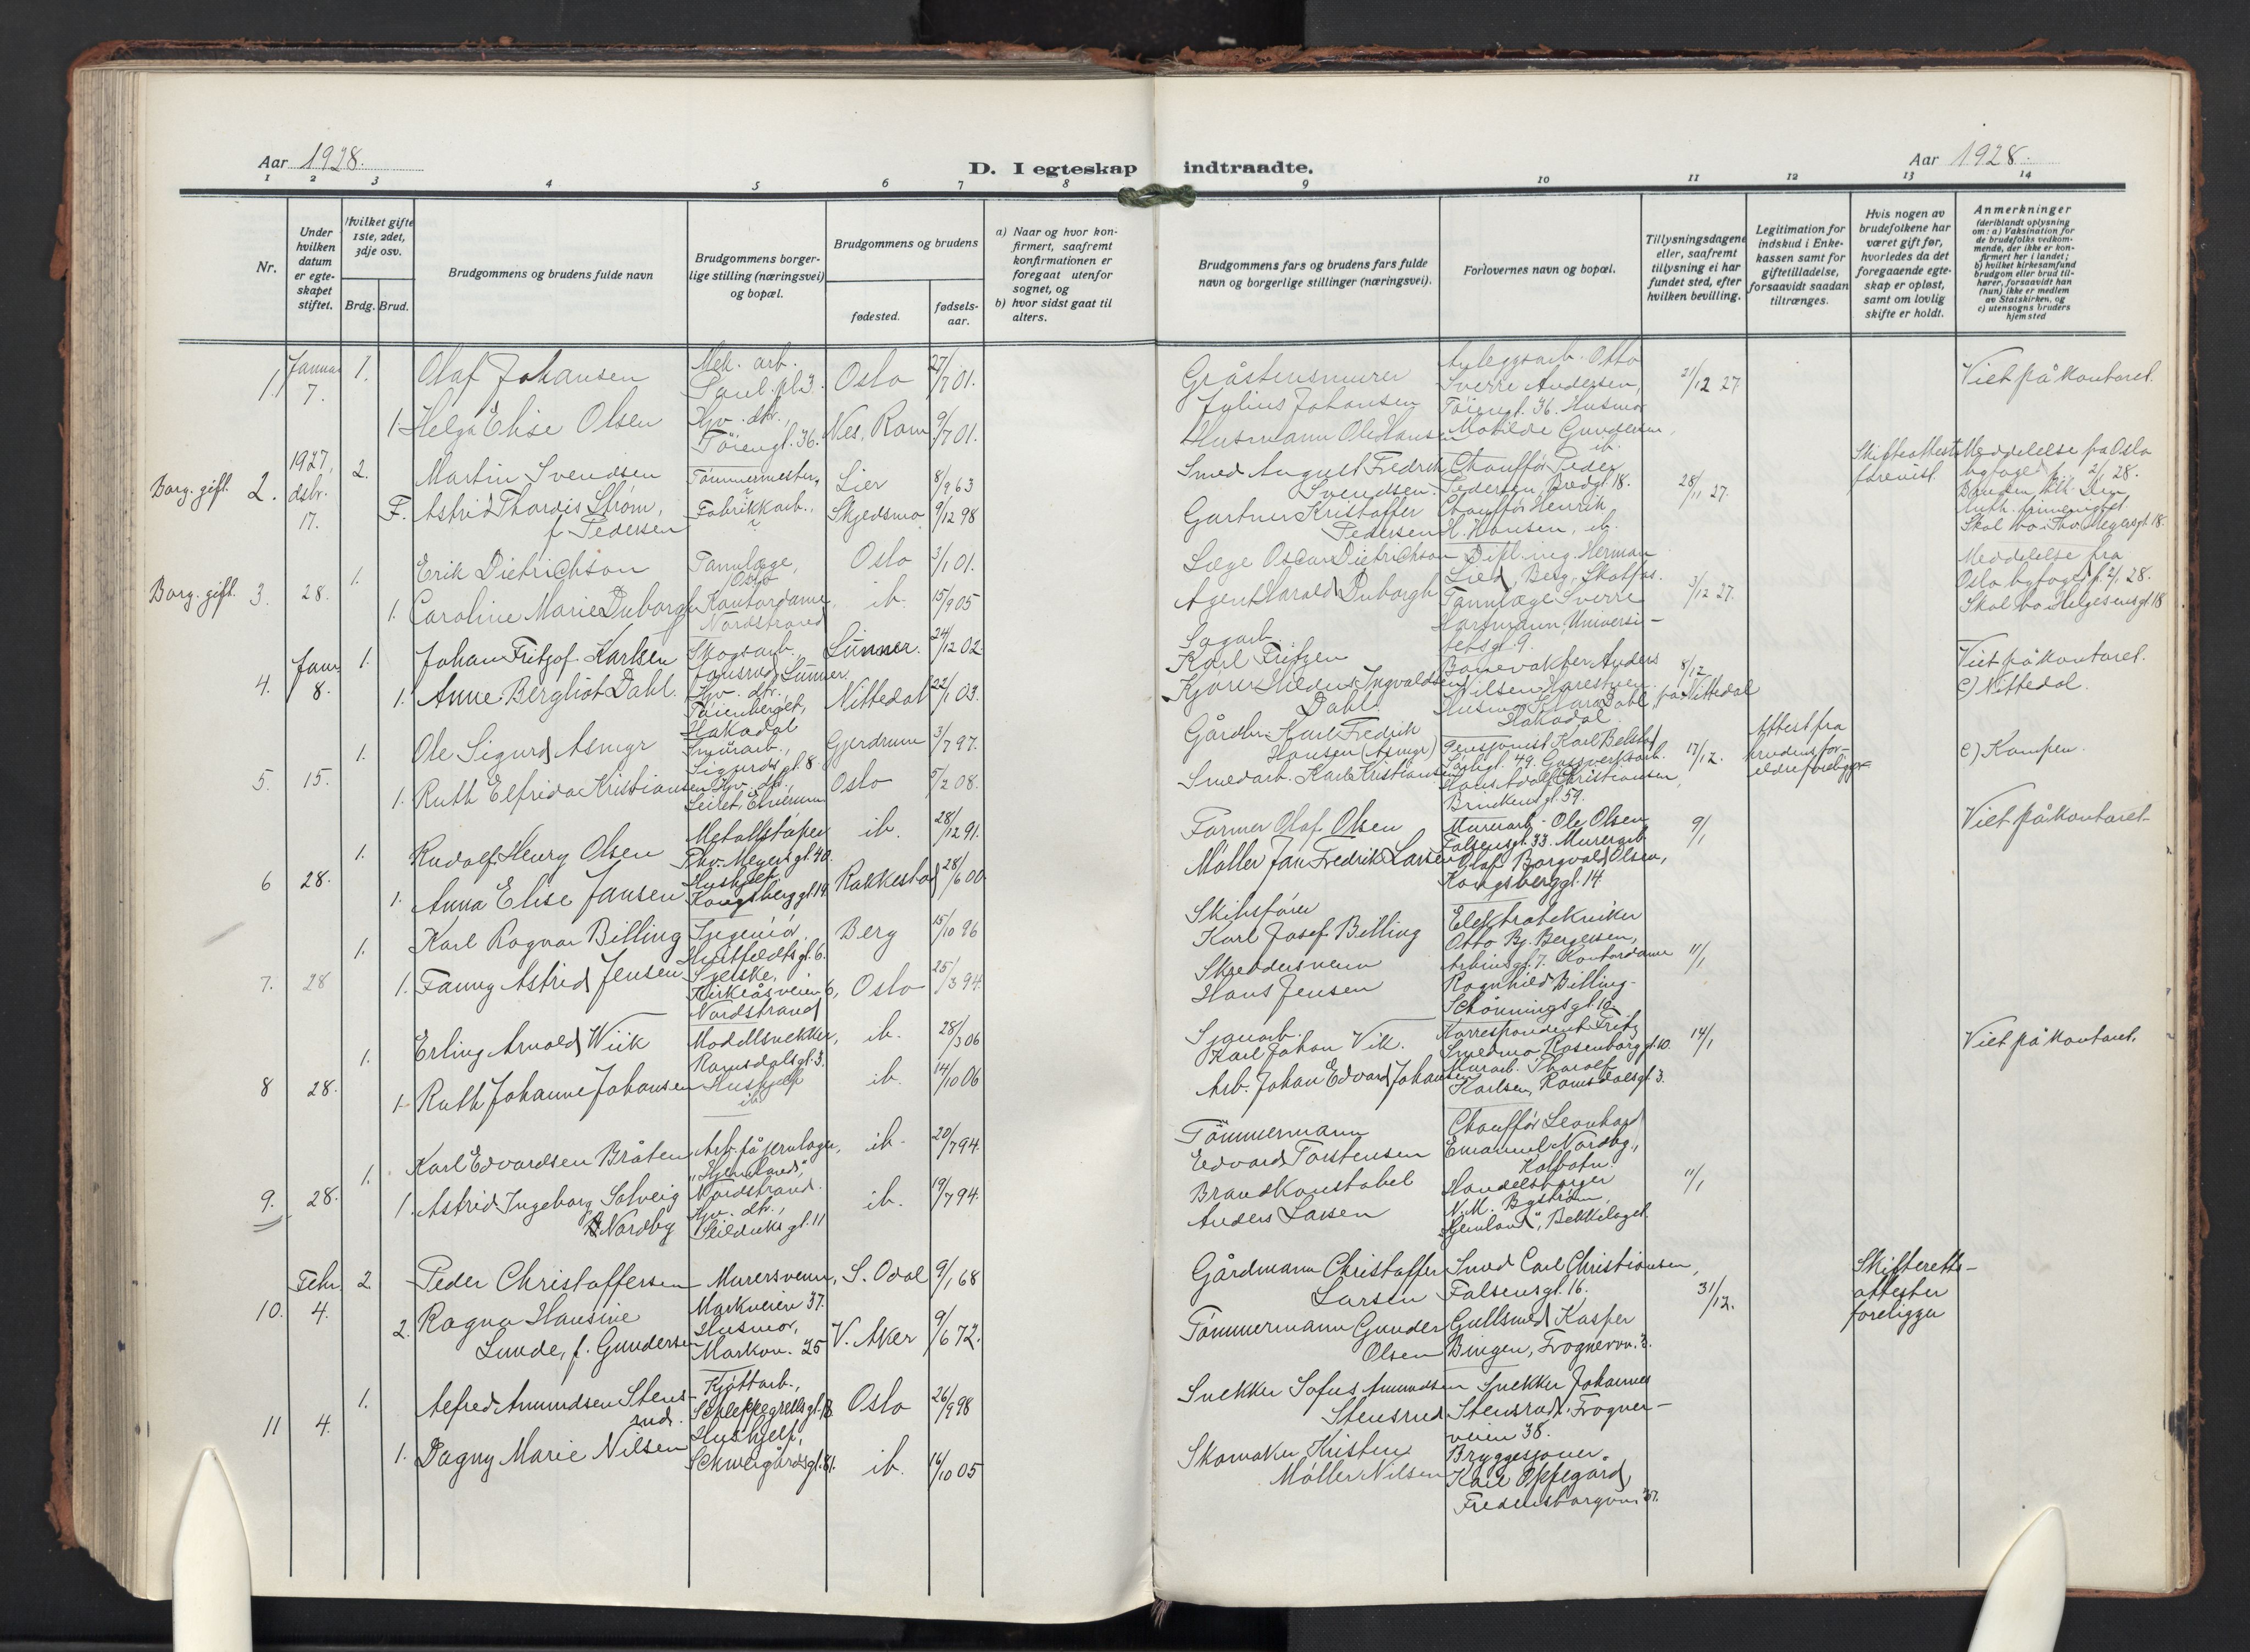 Aar 1928.
D. I egteskap indtraadte.
Aar 1928.
1 2 3 4 5 6 7 8 9 10 11 12 13 14
Nr.
Under hvilken datum er egteskapet stiftet.
Hvilket gifte 1ste, 2det, 3dje osv.
Brdg. Brud.
Brudgommens og brudens fulde navn
Brudgommens borgerlige stilling (næringsvei) og bopæl.
Brudgommens og brudens
fødested.
fødselsaar.
a) Naar og hvor konfirmert, saafremt konfirmationen er foregaat utenfor sognet, og
b) hvor sidst gaat til alters.
Brudgommens fars og brudens fars fulde navn og borgerlige stillinger (næringsvei).
Forlovernes navn og bopæl.
Tillysningsdagene eller, saafremt tillysning ei har fundet sted, efter hvilken bevilling.
Legitimation for indskud i Enkekassen samt for giftetilladelse, forsaavidt saadan tiltrænges.
Hvis nogen av brudefolkene har været gift før, hvorledes da det foregaaende egteskap er opløst, samt om lovlig skifte er holdt.
Anmerkninger
(deriblandt oplysning om: a) Vaksination for de brudefolks vedkommende, der ikke er konfirmert her i landet; b) hvilket kirkesamfund brudgom eller brud tilhører, forsaavidt han (hun) ikke er medlem av Statskirken, og c) utensogns bruders hjemsted
1. Januar 7. 1. Olaf Johansen Mek. arb. Paul. pl 3. Oslo 27/7 01. Gråstensmurer Julius Johansen Anleggsarb. Otto Sverre Andersen, Tøiengt. 36. Husmor 21/12 27. Viet på kontoret.
1. Helga Elise Olsen Hjv. dtr., Tøiengt. 36. Nes, Rom 9/7 01. Husmann Ole Hansen Matilde Gundersen, ib.
Borg. gift. 2. 1927, dsbr. 17. 2. Martin Svendsen Tømmermester, Lier 8/9 63 Smed August Fredrik Svendsen. Chauffør Peder Pedersen, Bredgt. 18. 28/11 27. Skifteattest forevist. Meddelelse fra Oslo byfoged f. 2/1 28.
F. Astrid Thordis Strøm, f. Pedersen Fabrikkarb., Skjedsmo 9/12 98 Gartner Kristoffer Pedersen Chauffør Henrik H. Hansen, ib. Skal bo Thv. Meyersgt. 18.
Borg. gift. 3. 28. 1. Erik Dietrichson Tannlæge, Oslo Oslo 3/1 01. Læge Oscar Dietrichson Dipl. ing. Herman Lied, Berg, Skolfos. 3/12 27. Meddelelse fra Oslo byfoged f. 2/1 28.
1. Caroline Marie Duborgh Kontordame, Nordstrand ib. 15/9 05 Agent Harald Duborgh Tannlæge Sverre Hartmann, Universitetsgt. 9. Skal bo Helgesensgt 18
4. Janr. 8. 1. Johan Fritjof Karlsen Skogsarb., Lunner. 24/12 02. Sagarb. Karl Fritzen Banevakter Anders Nilsen Harestuen. 8/12 på Nittedal Viet på kontoret.
1. Anne Bergliot Dahl. Hjv. dtr. Hakadal Nittedal 22/1 03. Kjører Hilden Ingvaldsen Dahl. Husmor Klara Dahl, Hakadal. c) Nittedal.
5. 15. 1. Ole Sigurd Asmyr Smørarb., Sigurdsgt. 8. Gjerdrum 3/7 97. Gårdbr. Karl Fredrik Hansen (Asmyr) Pensjonist Karl Belstad Sørligt. 49. Gassverksarb. 17/12. Attest fra brudens foreldre foreligger c) Kampen.
1. Ruth Elfrida Kristiansen Hjv. dtr., Oslo 5/2 08. Smedarb. Karl Kristiansen Hans Adolf Christiansen, Brinkensgt. 59.
6 28. 1. Rudolf Henry Olsen Metallstøper Thv. Meyers gt. 40. ib. 28/12 91. Farmer Olaf Olsen Murerarb. Ole Olsen Falsensgt. 33. Murerarb. 9/1 Viet på kontoret
1. Anna Elise Jansen Hushjelp Kongsberggt 14 Rakkestad 28/6 00. Møller Jan Fredrik Larsen Olaf Borgvald Olsen, Kongsberggt. 14.
7. 28 1. Karl Ragnar Billing Ingeniør, Huitfeldtsgt. 6. Berg 15/10 96 Skibsfører Karl Josef Billing Elektrotekniker Otto Bj. Bergersen, Arbinsgt. 7. Kontordame 11/1
1. Fanny Astrid Jensen Syerske, Kirkeåsveien 6, Nordstrand Oslo 25/3 94. Skreddersvenn Hans Jensen Ragnhild Billing. Schønningsgt. 10.
8 28. 1. Erling Arnold Wiik Modellsnekker, Ramsdalsgt. 3. ib. 28/3 06 Karl Johan Vik. Korrespondent Fritz Smedmo, Rosenborggt. 10. 14/1 Viet på kontoret.
1. Ruth Johanne Johansen Hushjelp ib. ib. 14/10 06 Arb. Johan Edvard Johansen Murarb. Thorolf Karlsen, Ramsdalsgt. 3.
9. 28. 1. Karl Edvardsen Bråten Arb. på jernlager, "Hjemland", Nordstrand. ib. 20/7 94. Tømmermann Edvard Torstensen Chauffør Leonhard Emanuel Nordby, Kolbotn. 11/1
1. Astrid Ingeborg Solveig Nordby Hjv. dtr., Seilduksgt. 11 ib. 19/7 94. Brandkonstabel Anders Larsen Handelsborger N. M. Bystrøm, "Hjemland", Bekkelaget.
10. Febr. 4. 2 Peder Christoffersen Murersvenn, Markveien 37. S. Odal 9/1 68 Gårdmann Christoffer Larsen Smed Carl Christiansen, Falsensgt. 16. 31/12. Skifterettsattester foreligger
2. Ragna Hansine Lunde, f. Gundersen Husmor, Markvn. 25 V. Aker 9/6 72. Tømmermann Gunder Olsen Gullsmed Kasper Bingen, Frognervn. 3.
11 4. 1. Alfred Amundsen Stensrud. Kjøttarb., Schleppegrellsgt. 18 Oslo 26/9 98 Snekker Sofus Amundsen Stensrud Snekker Johannes Stensrud, Frognerveien 38.
1. Dagny Marie Nilsen Hushjelp, Schweigårdsgt. 81. ib. 16/10 05 Skomaker Kristen Møller Nilsen Bryggesjauer Karl Oppegård, Fredensborgvn. 37.